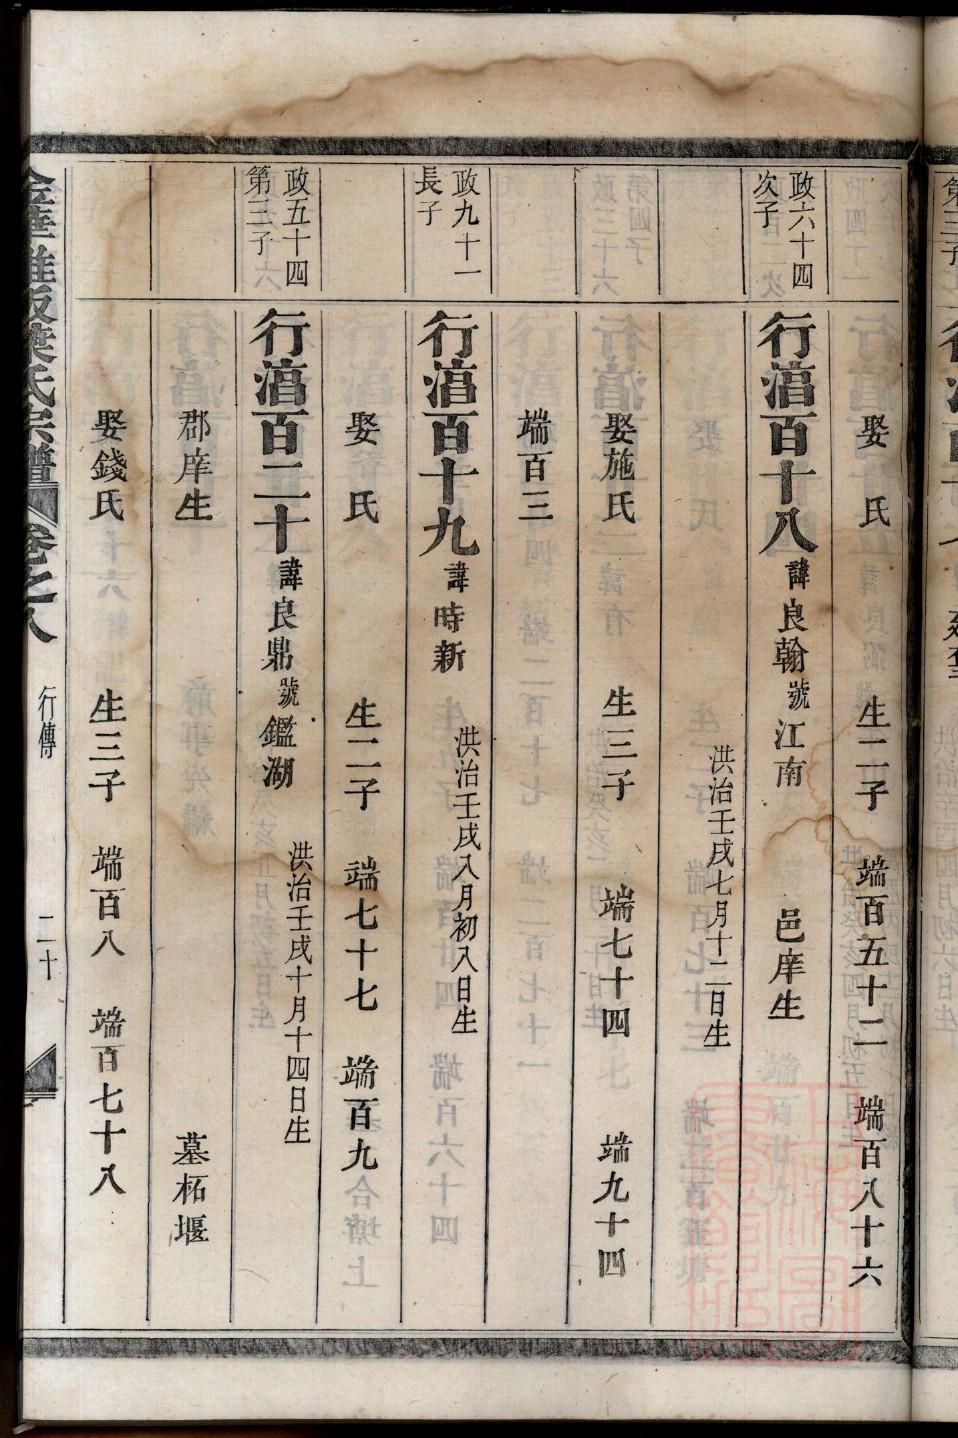 娶 氏 生二子 端百五十二 端百八十六
政六十四
次子
行湻百十八 諱良翰 號江南 邑庠生
洪治壬戌七月十二日生
娶施氏 生三子 端七十四 端九十四
端百三
政九十一
長子
行湻百十九 諱時新
洪治壬戌八月初八日生
娶 氏 生二子 端七十七 端百九
政五十四
第三子
行湻百二十 諱良鼎 號鑑湖
洪治壬戌十月十四日生
郡庠生 墓柘堰
娶錢氏 生三子 端百八 端百七十八
葉氏宗譜 卷之八 行傳 二十
第三子